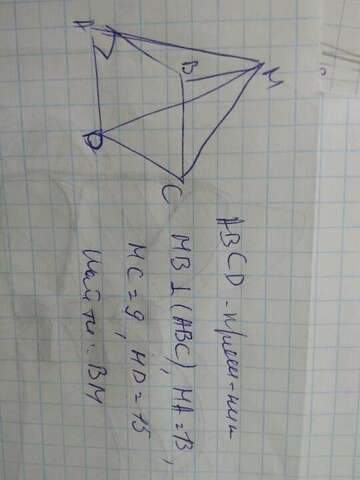 A
B
M
D
C
ABCD - прям-ник
MB ⊥ (ABC), MA = 13,
MC = 9, MD = 15
Найти: BM